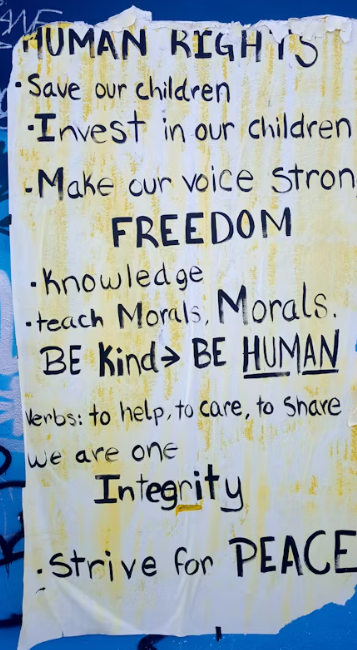 HUMAN RIGHTS
• Save our children
• Invest in our children
• Make our voice stron
FREEDOM
• Knowledge
• teach Morals, Morals.
BE Kind → BE HUMAN
Verbs: to help, to care, to share
we are one
Integrity
• Strive for PEACE